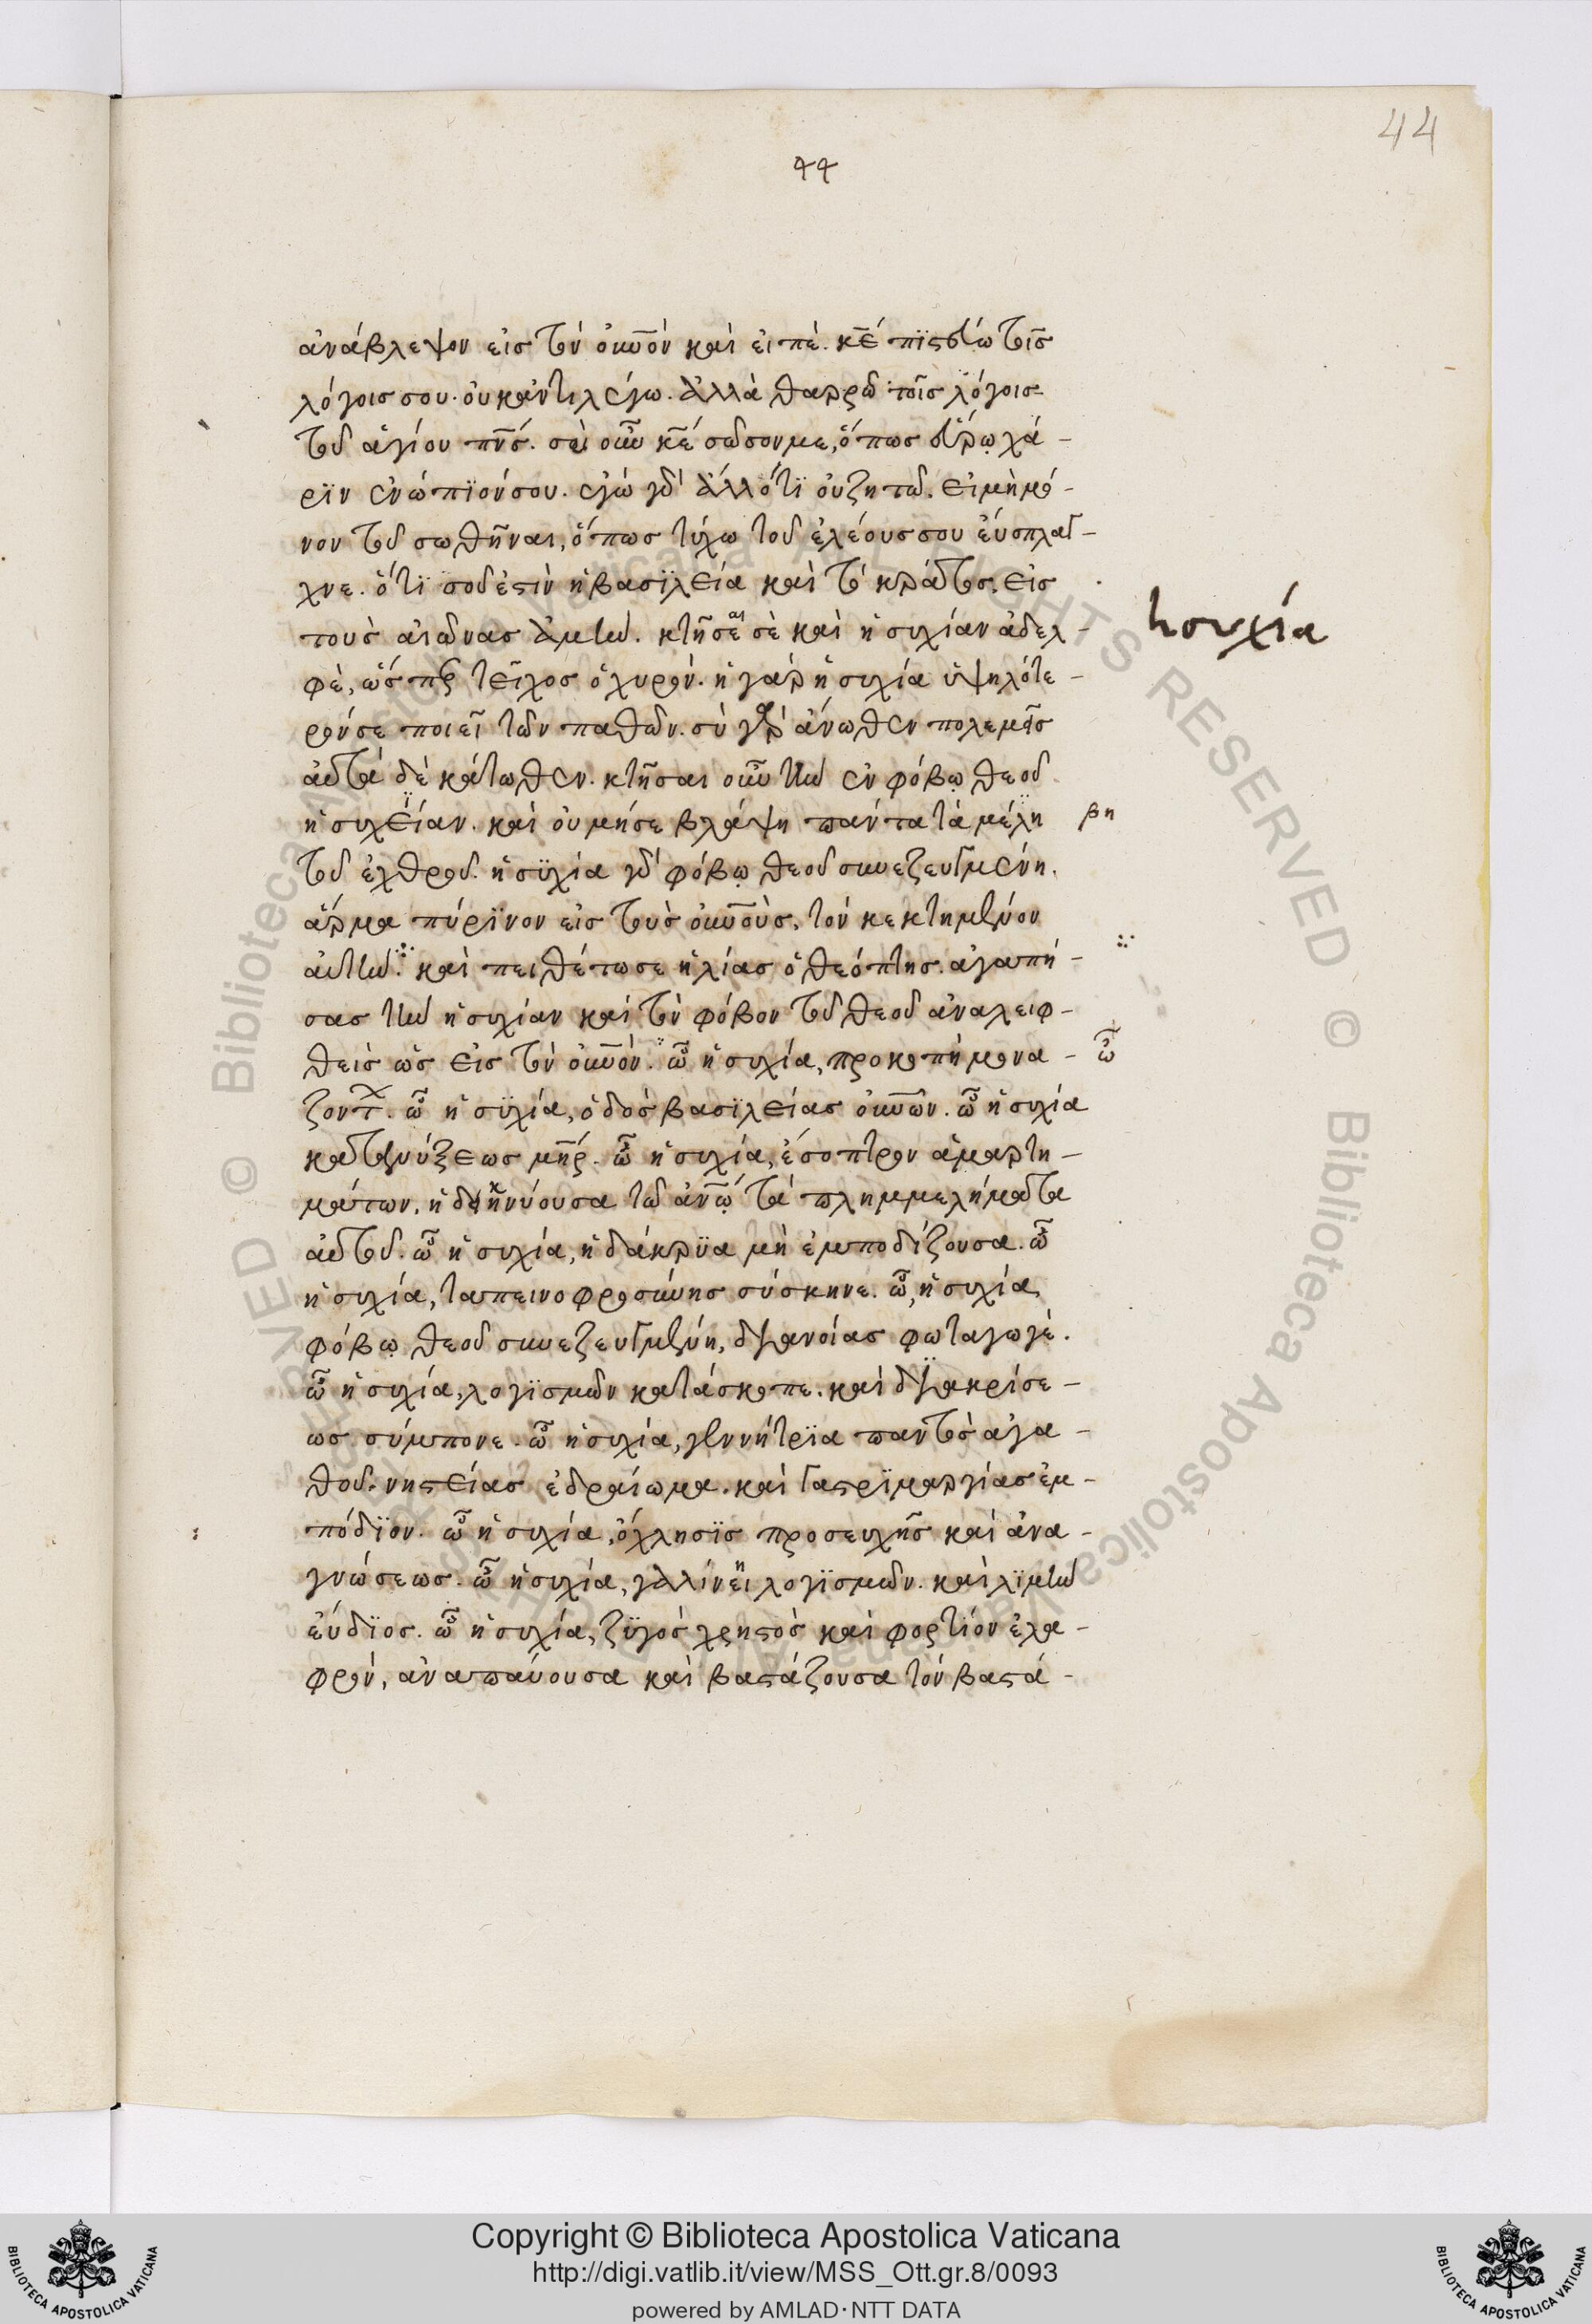 44
44
ἀνάβλεψον εἰσ τὸν οὐνὸν καὶ εἰπὲ. κ̅ε̅ πϊστεύω τοῖσ
λόγοισ σου. οὐκ ἀντιλέγω. ἀλλὰ θαρρῶ τοῖσ λόγοισ
τοῦ ἁγίου πν̅ς. σὺ οὖν κ̅ε̅ σῶσον με, ὅπωσ εὕρω χά -
ρϊν ἐνώπϊόν σου. ἐγὼ γὰρ ἄλλό τϊ οὐ ζητῶ. εἰ μὴ μό -
νον τοῦ σωθῆναι, ὅπωσ τύχω τοῦ ἐλέουσ σου εὔσπλαγ -
χνε. ὅτϊ σοῦ ἐστὶν ἡ βασϊλεία καὶ τὸ κράτοσ, εἰσ
τοὺσ αἰῶνασ ἀμήν. κτῆσαι σὲ καὶ ἡσυχίαν ἀδελ -
φὲ, ὥσπερ τεῖχοσ ὀχυρόν. ἡ γὰρ ἡσυχία ὑψηλότε -
ρόν σε ποιεῖ τῶν παθῶν. σὺ γὰρ ἄνωθεν πολεμεῖσ
αὐτὰ δὲ κάτωθεν. κτῆσαι οὖν τὴν ἐν φόβω θεοῦ
ἡσυχείαν. καὶ οὐ μή σε βλάψη πάντα τὰ μέλη
τοῦ ἐχθροῦ. ἡσϋχία γὰρ φόβω θεοῦ συνεζευγμένη.
ἅρμα πύρϊνον εἰσ τοὺσ οὐν̅οὺσ, τὸν κεκτημένον
αὐτήν. καὶ πειθέτω σε ἡλίασ ὁ θεόπτησ. ἀγαπή -
σασ τὴν ἡσυχίαν καὶ τὸν φόβον τοῦ θεοῦ ἀναλειφ -
θεὶσ ὡσ εἰσ τὸν οὐν̅όν. ὦ ἡσυχία, προκοπὴ μονα -
ζοντ. ὦ ἡσϋχία, ὁδὸσ βασϊλείασ οὐν̅ῶν. ὦ ἡσυχία
κατανύξεωσ μη̅ρ. ὦ ἡσυχία, ἔσοπτρον ἁμαρτη -
μάτων, ἡ δεικνύουσα τῶ ἀνω̅ τὰ πλημμελήματα
αὐτοῦ. ὦ ἡσυχία, ἡ δάκρϋα μὴ ἐμποδίζουσα. ὦ
ἡσυχία, ταπεινοφροσύνησ σύσκηνε. ὦ, ἡσυχία,
φόβω θεοῦ συνεζευγμένη, διανοίασ φωταγωγέ.
ὦ ἡσυχία, λογϊσμῶν κατάσκοπε. καὶ διακρίσε -
ωσ σύμπονε. ὦ ἡσυχία, γεννήτρϊα παντὸσ ἀγα -
θοῦ. νηστείασ ἑδραίωμα. καὶ γαστρϊμαργίασ ἐμ -
πόδϊον. ὦ ἡσυχία, ὄχλησϊσ προσευχῆσ καὶ ἀνα -
γνώσεωσ. ὦ ἡσυχία, γαλήνη λογϊσμῶν. καὶ λϊμὴν
εὔδϊοσ. ὦ ἡσυχία, ζϋγὸσ χρηστὸσ καὶ φορτίον ἐλα -
φρόν, ἀναπαύουσα καὶ βαστάζουσα τὸν βαστά -
ἡσυχία
βη
ὦ
Copyright © Biblioteca Apostolica Vaticana
http://digi.vatlib.it/view/MSS_Ott.gr.8/0093
powered by AMLAD·NTT DATA
BIBLIOTECA APOSTOLICA VATICANA
BIBLIOTECA APOSTOLICA VATICANA